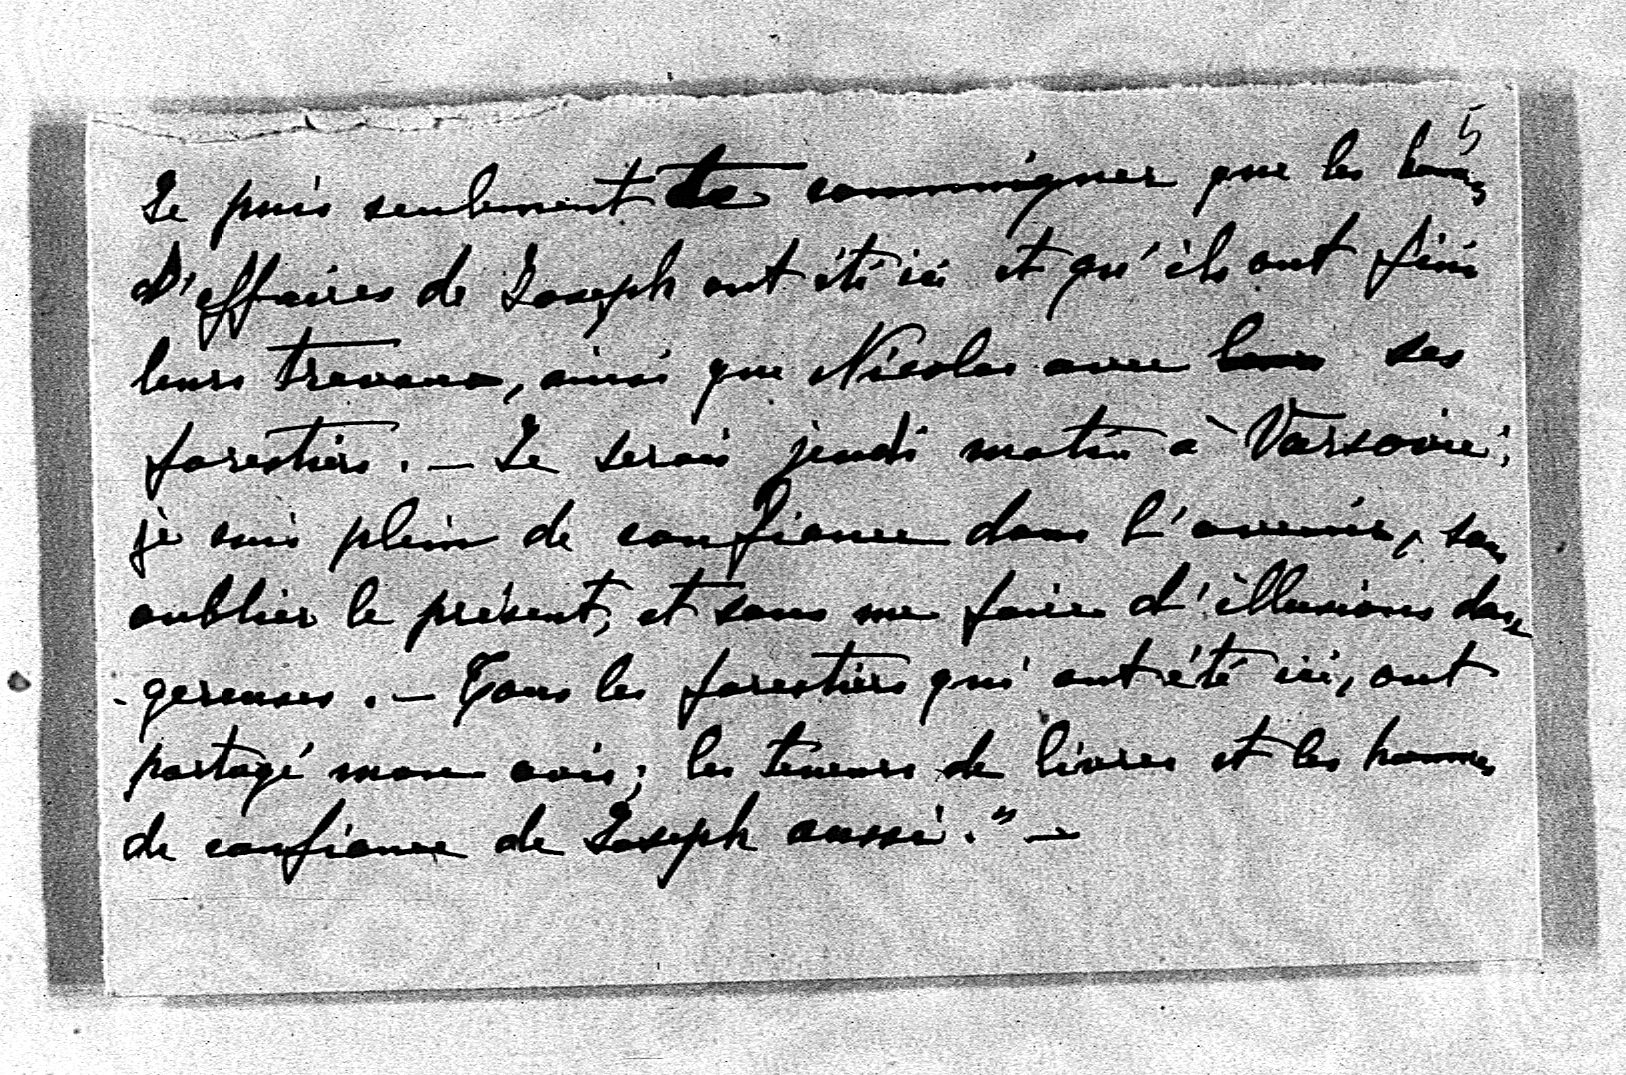 5
Je puis seulement te communiquer que les hommes
d'affaires de Joseph ont été ici et qu'ils ont fini
leurs travaux, ainsi que Nicolas avec leurs ses
forestiers. — Je serais jeudi matin à Varsovie;
je suis plein de confiance dans l'avenir, sans
oublier le présent, et sans me faire d'illusions dan-
-gereuses. — Tous les forestiers qui ont été ici, ont
partagé mon avis; les teneurs de livres et les hommes
de confiance de Joseph aussi." —